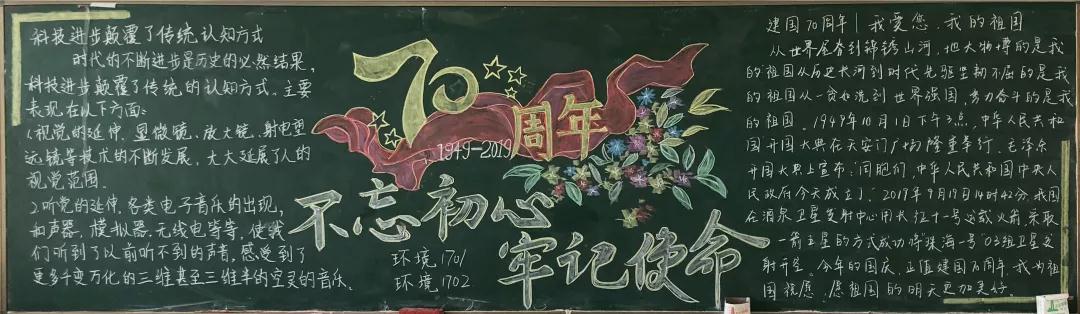 科技进步颠覆了传统认知方式
时代的不断进步是历史的必然结果,
科技进步颠覆了传统的认知方式。主要
表现在以下方面:
1.视觉的延伸。显微镜、放大镜、射电望
远镜等技术的不断发展,大大延展了人的
视觉范围。
2.听觉的延伸。各类电子音乐的出现,
扣声器、模拟器、无线电等等,使我
们听到了以前听不到的声音,感受到了
更多千变万化的三维甚至三维半的空灵的音乐。
70
周年
1949-2019
不忘初心
牢记使命
环境1701
环境1702
建国70周年|我爱您,我的祖国
从世界屋脊到锦绣山河,地大物博的是我
的祖国从历史长河到时代先驱坚韧不屈的是我
的祖国从一贫如洗到世界强国,努力奋斗的是我
的祖国。1949年10月1日下午3点,中华人民共和
国开国大典在天安门广场隆重举行。毛泽东
开国大典上宣布:同胞们,中华人民共和国中央人
民政府今天成立了!2019年9月19日14时42分,我国
在酒泉卫星发射中心用长征十一号运载火箭,采取
一箭五星的方式成功将"珠海一号"03组卫星发
射升空。今年的国庆,正值建国70周年,我为祖
国祝愿,愿祖国的明天更加美好。